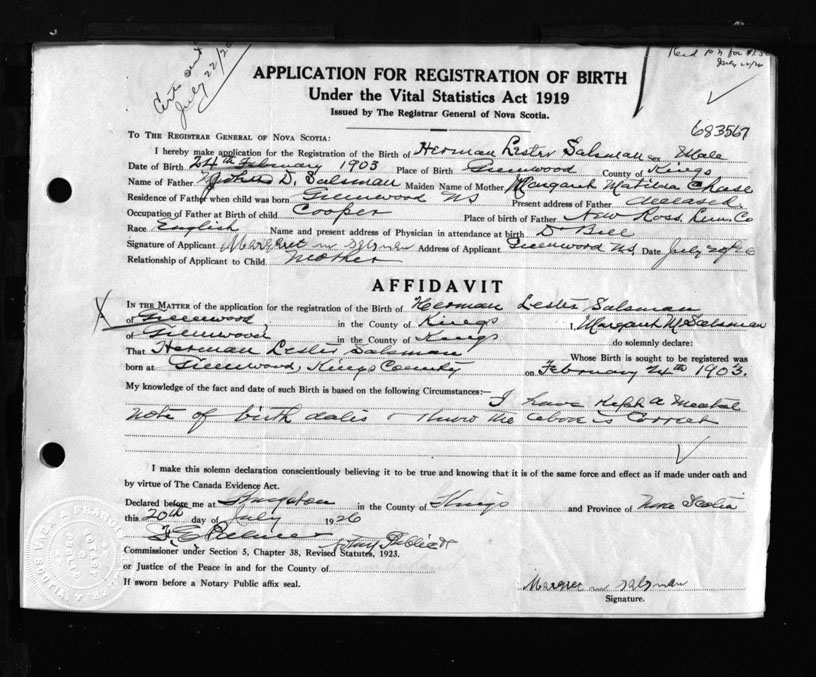 Cert sent
July 22/26
July 22/26
APPLICATION FOR REGISTRATION OF BIRTH
Under the Vital Statistics Act 1919
Issued by The Registrar General of Nova Scotia.
683567
TO THE REGISTRAR GENERAL OF NOVA SCOTIA:
I hereby make application for the Registration of the Birth of Herman Lester Salsman Sex Male
Date of Birth 24th February 1903 Place of Birth Greenwood County of Kings
Name of Father John D. Salsman Maiden Name of Mother Margaret Matilda Chase
Residence of Father when child was born Greenwood NS Present address of Father deceased.
Occupation of Father at Birth of child Cooper Place of birth of Father New Ross, Lun. Co
Race English Name and present address of Physician in attendance at birth Dr Bell
Signature of Applicant Margaret m Salsman Address of Applicant Greenwood NS. Date July 20/26
Relationship of Applicant to Child Mother
AFFIDAVIT
IN THE MATTER of the application for the registration of the Birth of Herman Lester Salsman
of Greenwood, in the County of Kings I, Margaret M Salsman
of Greenwood in the County of Kings do solemnly declare:
That Herman Lester Salsman Whose Birth is sought to be registered was
born at Greenwood, Kings County on February 24th 1903.
My knowledge of the fact and date of such Birth is based on the following Circumstances:— I have Kept a
note of birth dates & Know the above is Correct
I make this solemn declaration conscientiously believing it to be true and knowing that it is of the same force and effect as if made under oath and
by virtue of The Canada Evidence Act.
Declared before me at Kingston in the County of Kings and Province of Nova Scotia
this 20th day of July 1926
Commissioner under Section 5, Chapter 38, Revised Statutes, 1923.
or Justice of the Peace in and for the County of
If sworn before a Notary Public affix seal.
Margaret m Salsman
Signature.